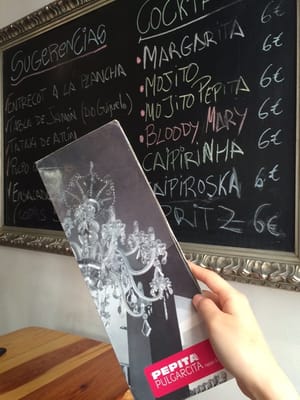 SUGERENCIAS
ENTRECOT A LA PLANCHA
TABLA DE JAMÓN (DO Guijuelo)
TARTAR DE ATÚN
PULPO
ENSALADA
COCKT
- MARGARITA 6€
- MOJITO 6€
- MOJITO PEPITA 6€
- BLOODY MARY 6€
CAIPIRINHA 6€
CAIPIROSKA 6€
SPRITZ 6€
PEPITA
PULGARCITA